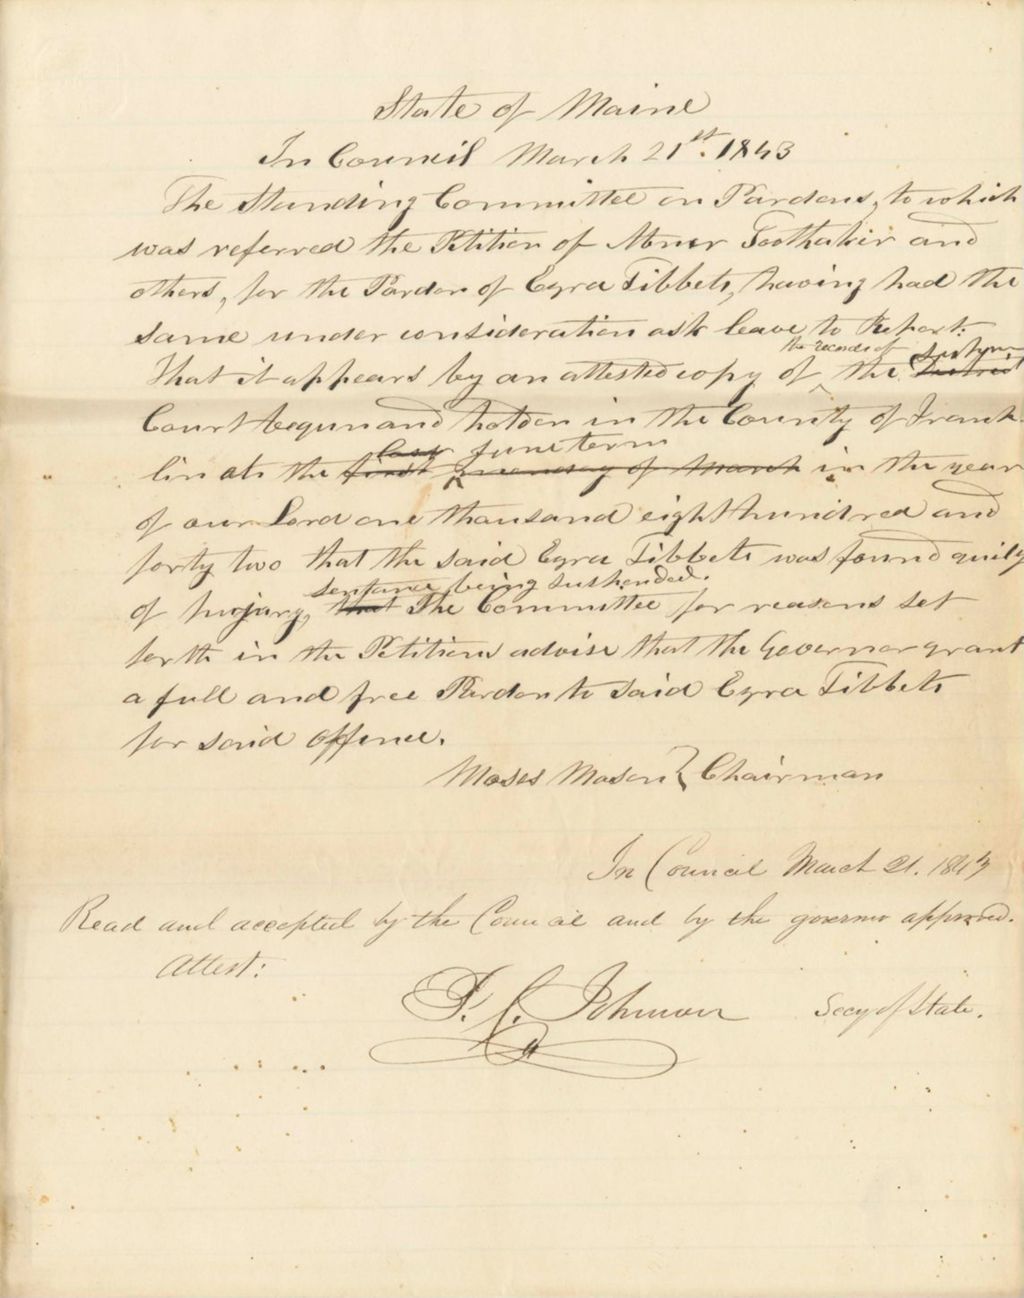 State of Maine
In Council March 21st. 1843
The Standing Committee on Pardons, to which
was referred the Petition of Abner Toothaker and
others, for the Pardon of Ezra Tibbets, having had the
same under consideration ask leave to Report:
the records of
That it appears by an attested copy of the District
Court begun and holden in the County of Frank-
last June term
lin at the first Tuesday of March in the year
of our Lord one thousand eight hundred and
forty two that the said Ezra Tibbets was found guilty
sentance being suspended.
of perjury, that The Committee for reasons set
forth in the Petition advise that the Governor grant
a full and free Pardon to said Ezra Tibbets
for said offence.
Moses Mason } Chairman
In Council March 21. 1843
Read and accepted by the Council and by the governor approved.
Attest:
P. C. Johnson Secy of State.